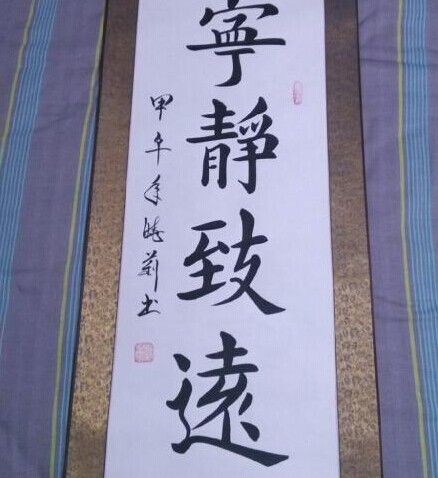 寧靜致遠
甲午年晓莉书